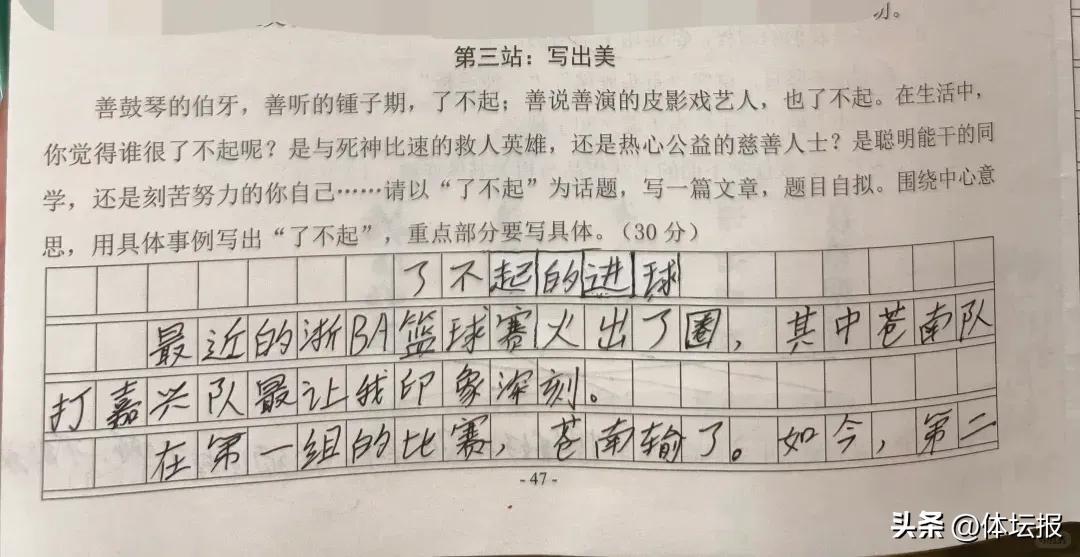 第三站：写出美
善鼓琴的伯牙，善听的锺子期，了不起；善说善演的皮影戏艺人，也了不起。在生活中，
你觉得谁很了不起呢？是与死神比速的救人英雄，还是热心公益的慈善人士？是聪明能干的同
学，还是刻苦努力的你自己……请以“了不起”为话题，写一篇文章，题目自拟。围绕中心意
思，用具体事例写出“了不起”，重点部分要写具体。（30分）
了不起的进球
最近的浙BA篮球赛火出了圈，其中苍南队
打嘉兴队最让我印象深刻。
在第一组的比赛，苍南输了。如今，第二
- 47 -
头条 @体坛报